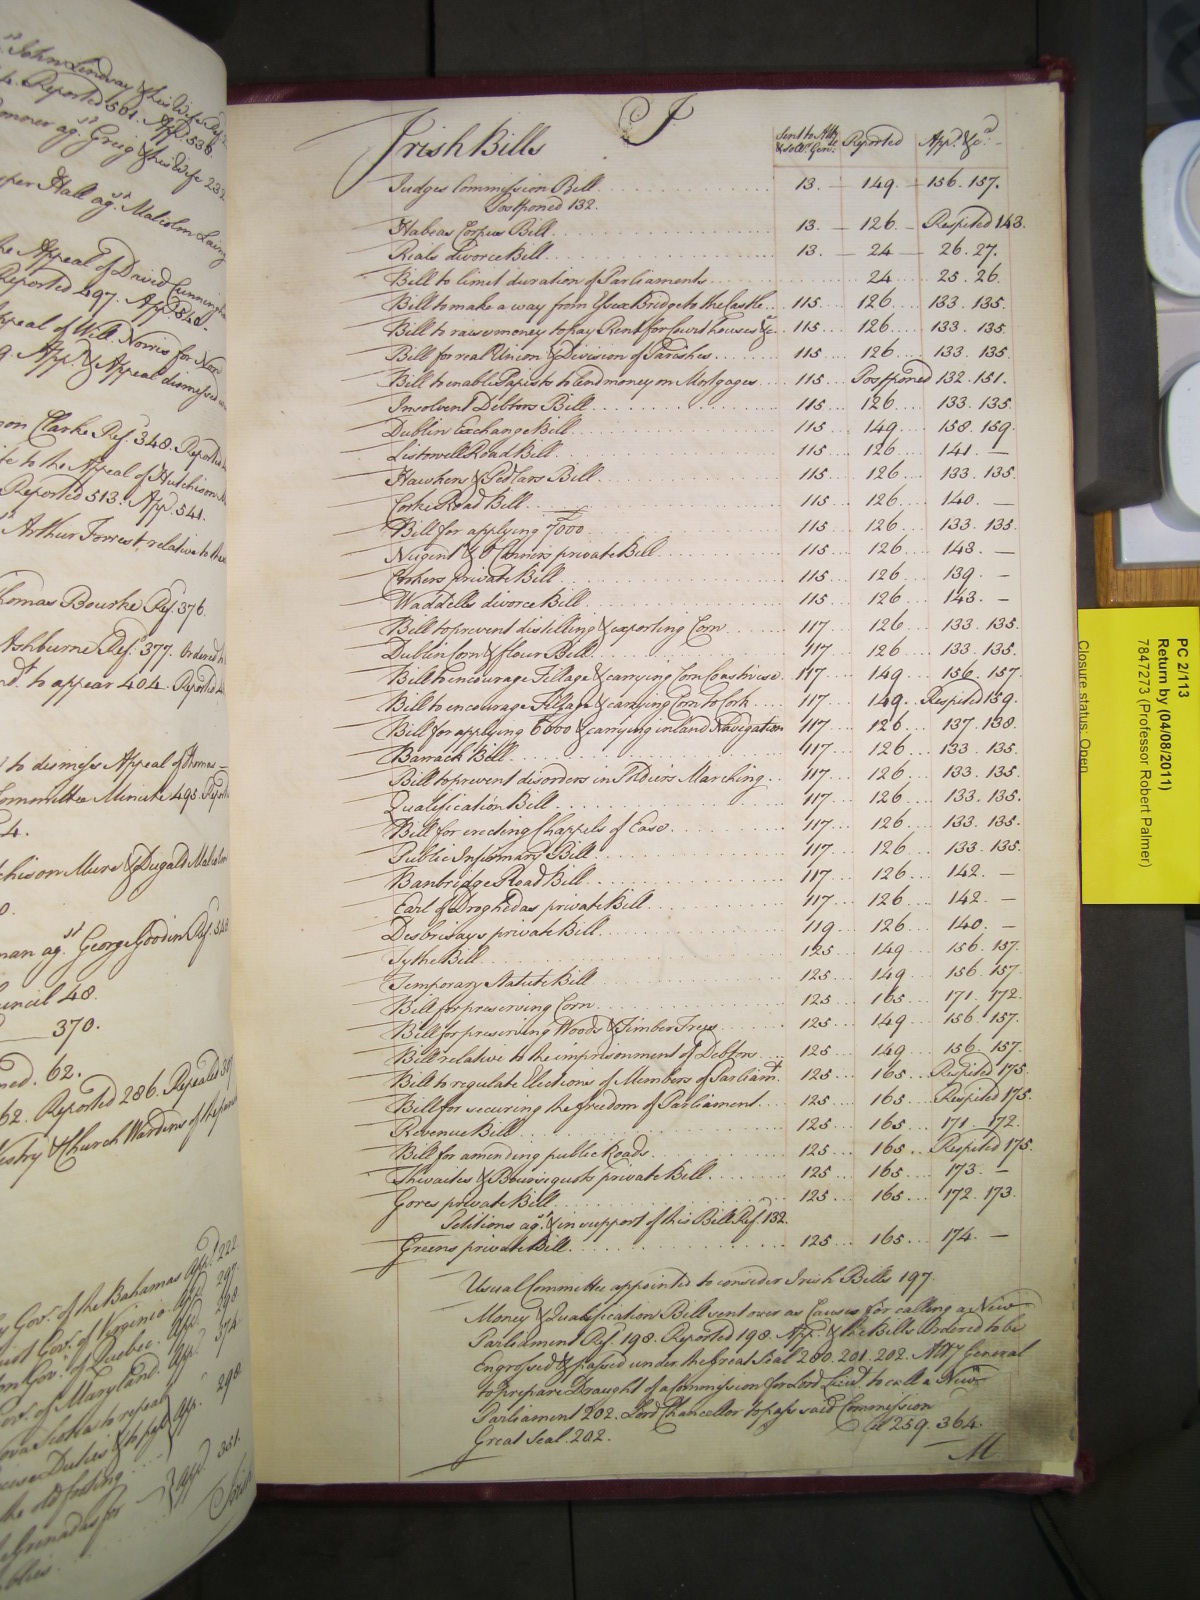 I
Irish Bills
Sent to Atty & Sollr. Genl. Reported App.d &c.a
Judges Commission Bill 13. 149. 156. 157.
Postponed 132.
Habeas Corpus Bill 13. 126. Respited 143.
Rials divorce Bill 13. 24 26. 27.
Bill to limit duration of Parliaments 24 25. 26.
Bill to make a way from Essex Bridge to the Castle 115 126 133. 135.
Bill to raise money to pay Rent for houses &c. 115 126 133. 135.
Bill for real Union & Division of Parishes 115 126 133. 135.
Bill to enable Papists to lend money on Mortgages 115 Postponed 132. 151.
Insolvent Debtors Bill 115 126 133. 135.
Dublin Exchange Bill 115 149 158. 159.
Listowell Road Bill 115 126 141. —
Hawkers & Pedlars Bill 115 126 133. 135.
Corke Road Bill 115 126 140. —
Bill for applying 7000£ 115 126 133. 135.
Nugent & O'Connors private Bill 115 126 143. —
Cokers private Bill 115 126 139. —
Waddells divorce Bill 115 126 143. —
Bill to prevent distilling & exporting Corn 117 126 133. 135.
Dublin Corn & flour Bill 117 126 133. 135.
Bill to encourage Tillage & carrying Corn Coastwise 117 149 156. 157.
Bill to encourage Tillage & carrying Corn to Cork 117 149. Respited 159.
Bill for applying 6000 & carrying inland Navigation 117 126 137. 138.
Barrack Bill 117 126 133. 135.
Bill to prevent disorders in Soldiers Marching 117 126 133. 135.
Qualification Bill 117 126 133. 135.
Bill for erecting Chappels of Ease 117 126 133. 135.
Public Infirmary Bill 117 126 133. 135.
Banbridge Road Bill 117 126 142. —
Earl of Droghedas private Bill 117 126 142. —
Desbrisays private Bill 119 126 140. —
Tythe Bill 125 149 156. 157.
Temporary Statute Bill 125 149 156. 157.
Bill for preserving Corn 125 165 171. 172.
Bill for preserving Woods & Timber Trees 125 149 156. 157.
Bill relative to the imprisonment of Debtors 125 149 156. 157.
Bill to regulate Elections of Members of Parliamt. 125 165 Respited 175.
Bill for securing the freedom of Parliament 125 165 Respited 175.
Revenue Bill 125 165 171. 172.
Bill for amending public Roads 125 165 Respited 175.
Thwaites & private Bill 125 165 173. —
Gores private Bill 125 165 172. 173.
Petitions agst. & in support of this Bill Ref. 132.
Greens private Bill 125 165 174. —
Usual Committee appointed to consider Irish Bills 197.
Money & Qualification Bill sent over as Causes for calling a New
Parliament Ref. 198. Reported 198. App.d & the Bills Ordered to be
Engrossed & passed under the Great Seal 200. 201. 202. Atty General
to prepare Draught of a Commission for Lord Lieut. to call a New
Parliament 202. Lord Chancellor to pass said Commission
Great Seal 202. 259. 364.
M
PC 2/113
Return by (04/08/2011)
7847273 (Professor Robert Palmer)
Closure status: Open
John Lindsay & his Wife Ref.
Reported 501. App. 538.
ag.st Greig & his Wife 232
Hall ag.st Malcolm Laing
the Appeal of David Cunningham
Reported 497. App. 540.
Appeal of Will. Norris for
App.d & Appeal dismissed
Clarke Ref. 348. Reported
to the Appeal of Hutchison
Reported 513. App. 541.
Arthur Forrest, relative to the
Thomas Bourke Ref. 376.
Ashburne Ref. 377. Ordered
to appear 404. Reported
to dismiss Appeal of Thomas
Committee Minute 495.
Mure & Dugald Malcolm
ag.st George Goodin Ref.
Council 48.
370.
62.
62. Reported 286. Repealed
Vestry & Church Wardens of the
Gov.r of the Bahamas App.d 222
Gov.r of Virginia App.d 297.
Gov.r of Quebec App.d 298.
Gov.r of Maryland App.d 374.
Nova Scotia to repeal
Duties & to pass App. 298
the old footing
Grenadas for App.d 351.
Irish